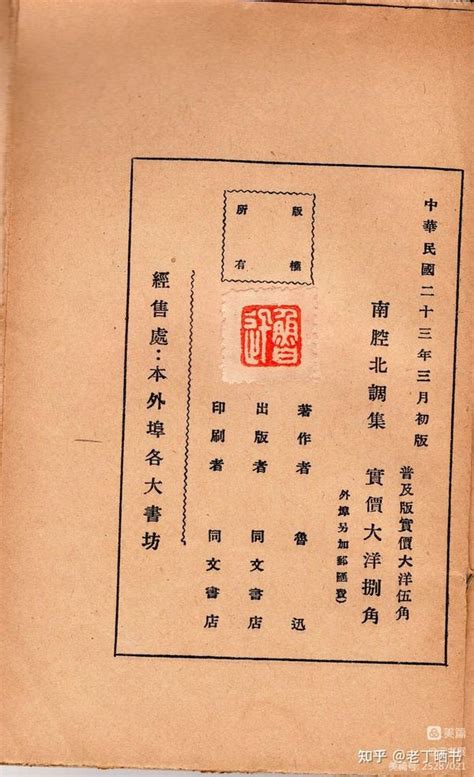 中華民國二十三年三月初版
普及版實價大洋伍角
南腔北調集 實價大洋捌角
外埠另加郵匯費)
著作者 魯迅
出版者 同文書店
印刷者 同文書店
版權所有
魯迅
經售處：本外埠各大書坊
美篇
知乎 @老丁晒书
美篇号: 25287021